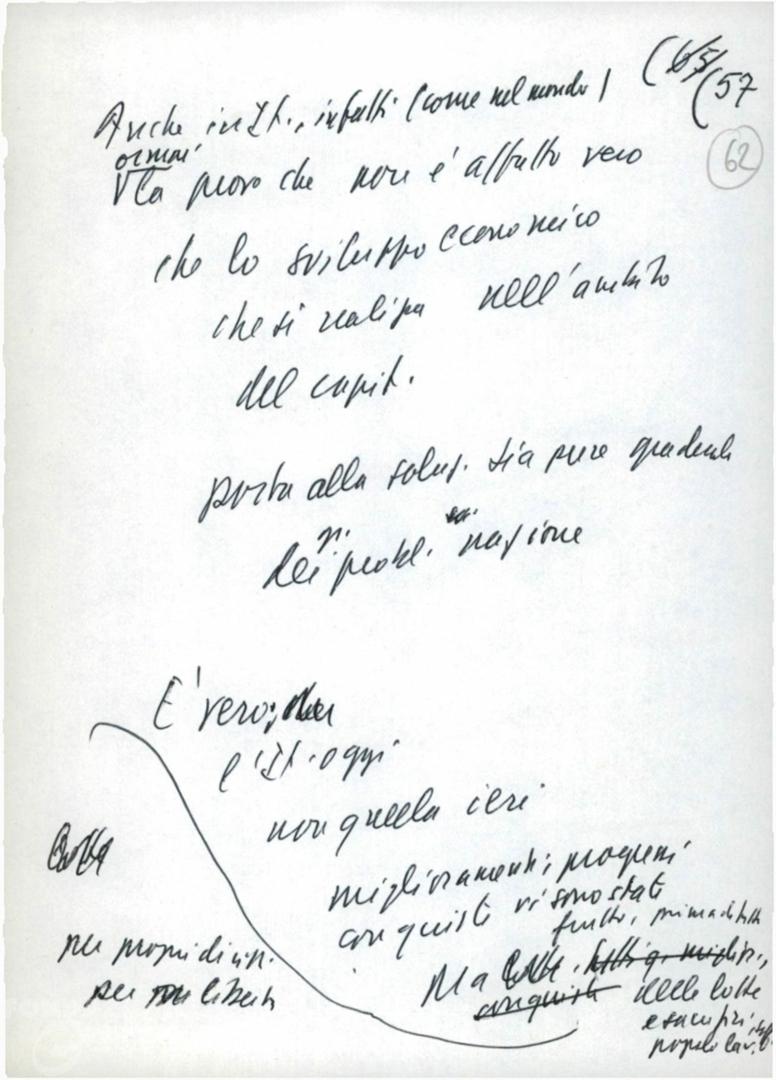 (57
62
Anche in It., infatti (come nel mondo)
ormai
V la prova che non è affatto vero
che lo sviluppo economico
che si realizza nell'ambito
del capit.
porta alla soluz. sia pure graduale
dei probl. nazione
E' vero:
l'It. oggi
non quella ieri
miglioramenti, progressi
conquiste vi sono stati
frutto, prima di tutto
Ma lotte
conquiste delle lotte
e sacrifici
popolo lav.
Lotte
per propri
per libertà